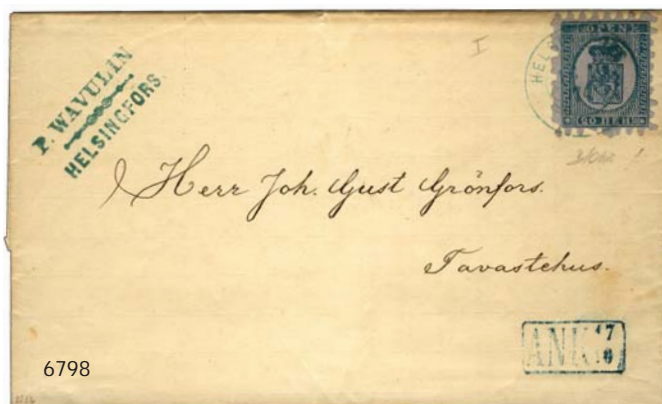 P. WAVULIN
HELSINGFORS.
I
HEL
PEN
20 ПЕН
Herr Joh. Gust Grönfors.
Tavastehus.
ANK 17
6798